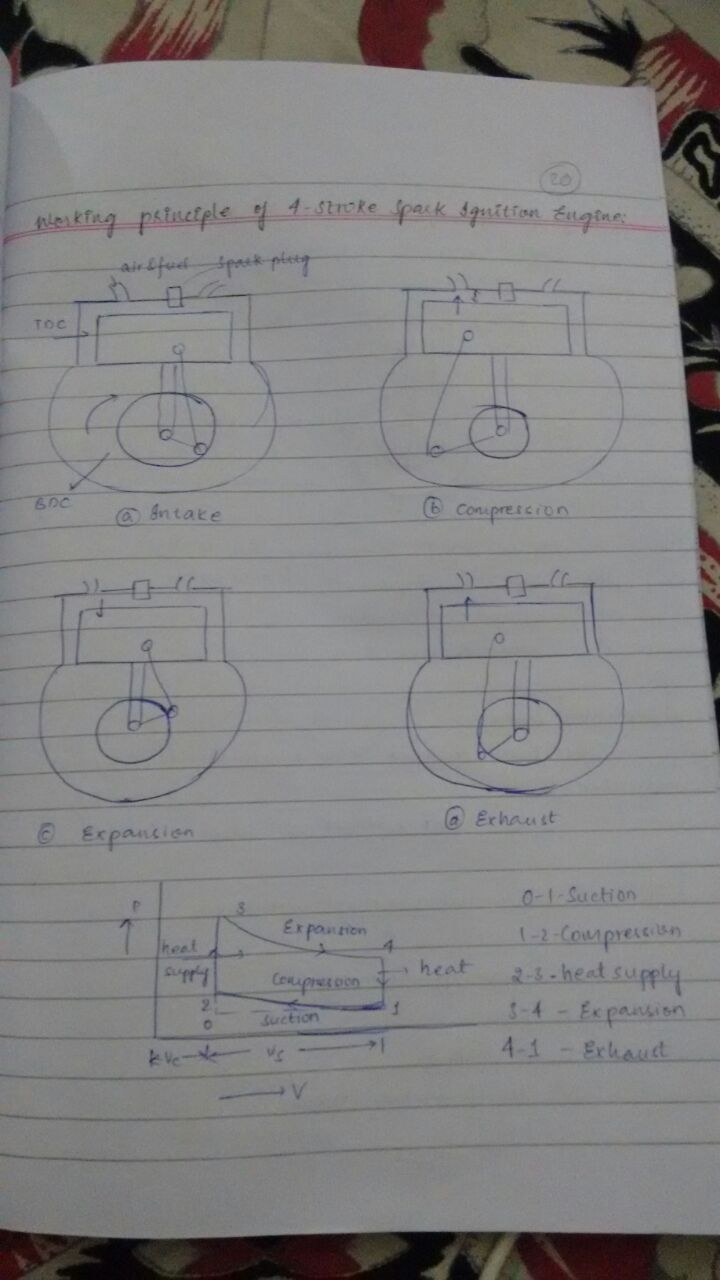 20
Working principle of 4-stroke Spark Ignition Engine:
air & fuel spark plug
TDC
BDC
(a) Intake
(b) Compression
(c) Expansion
(d) Exhaust
P
3
Expansion
4
heat
supply
heat
Compression
2
1
0
suction
Vc
Vs
V
0-1-Suction
1-2-Compression
2-3-heat supply
3-4 - Expansion
4-1 - Exhaust